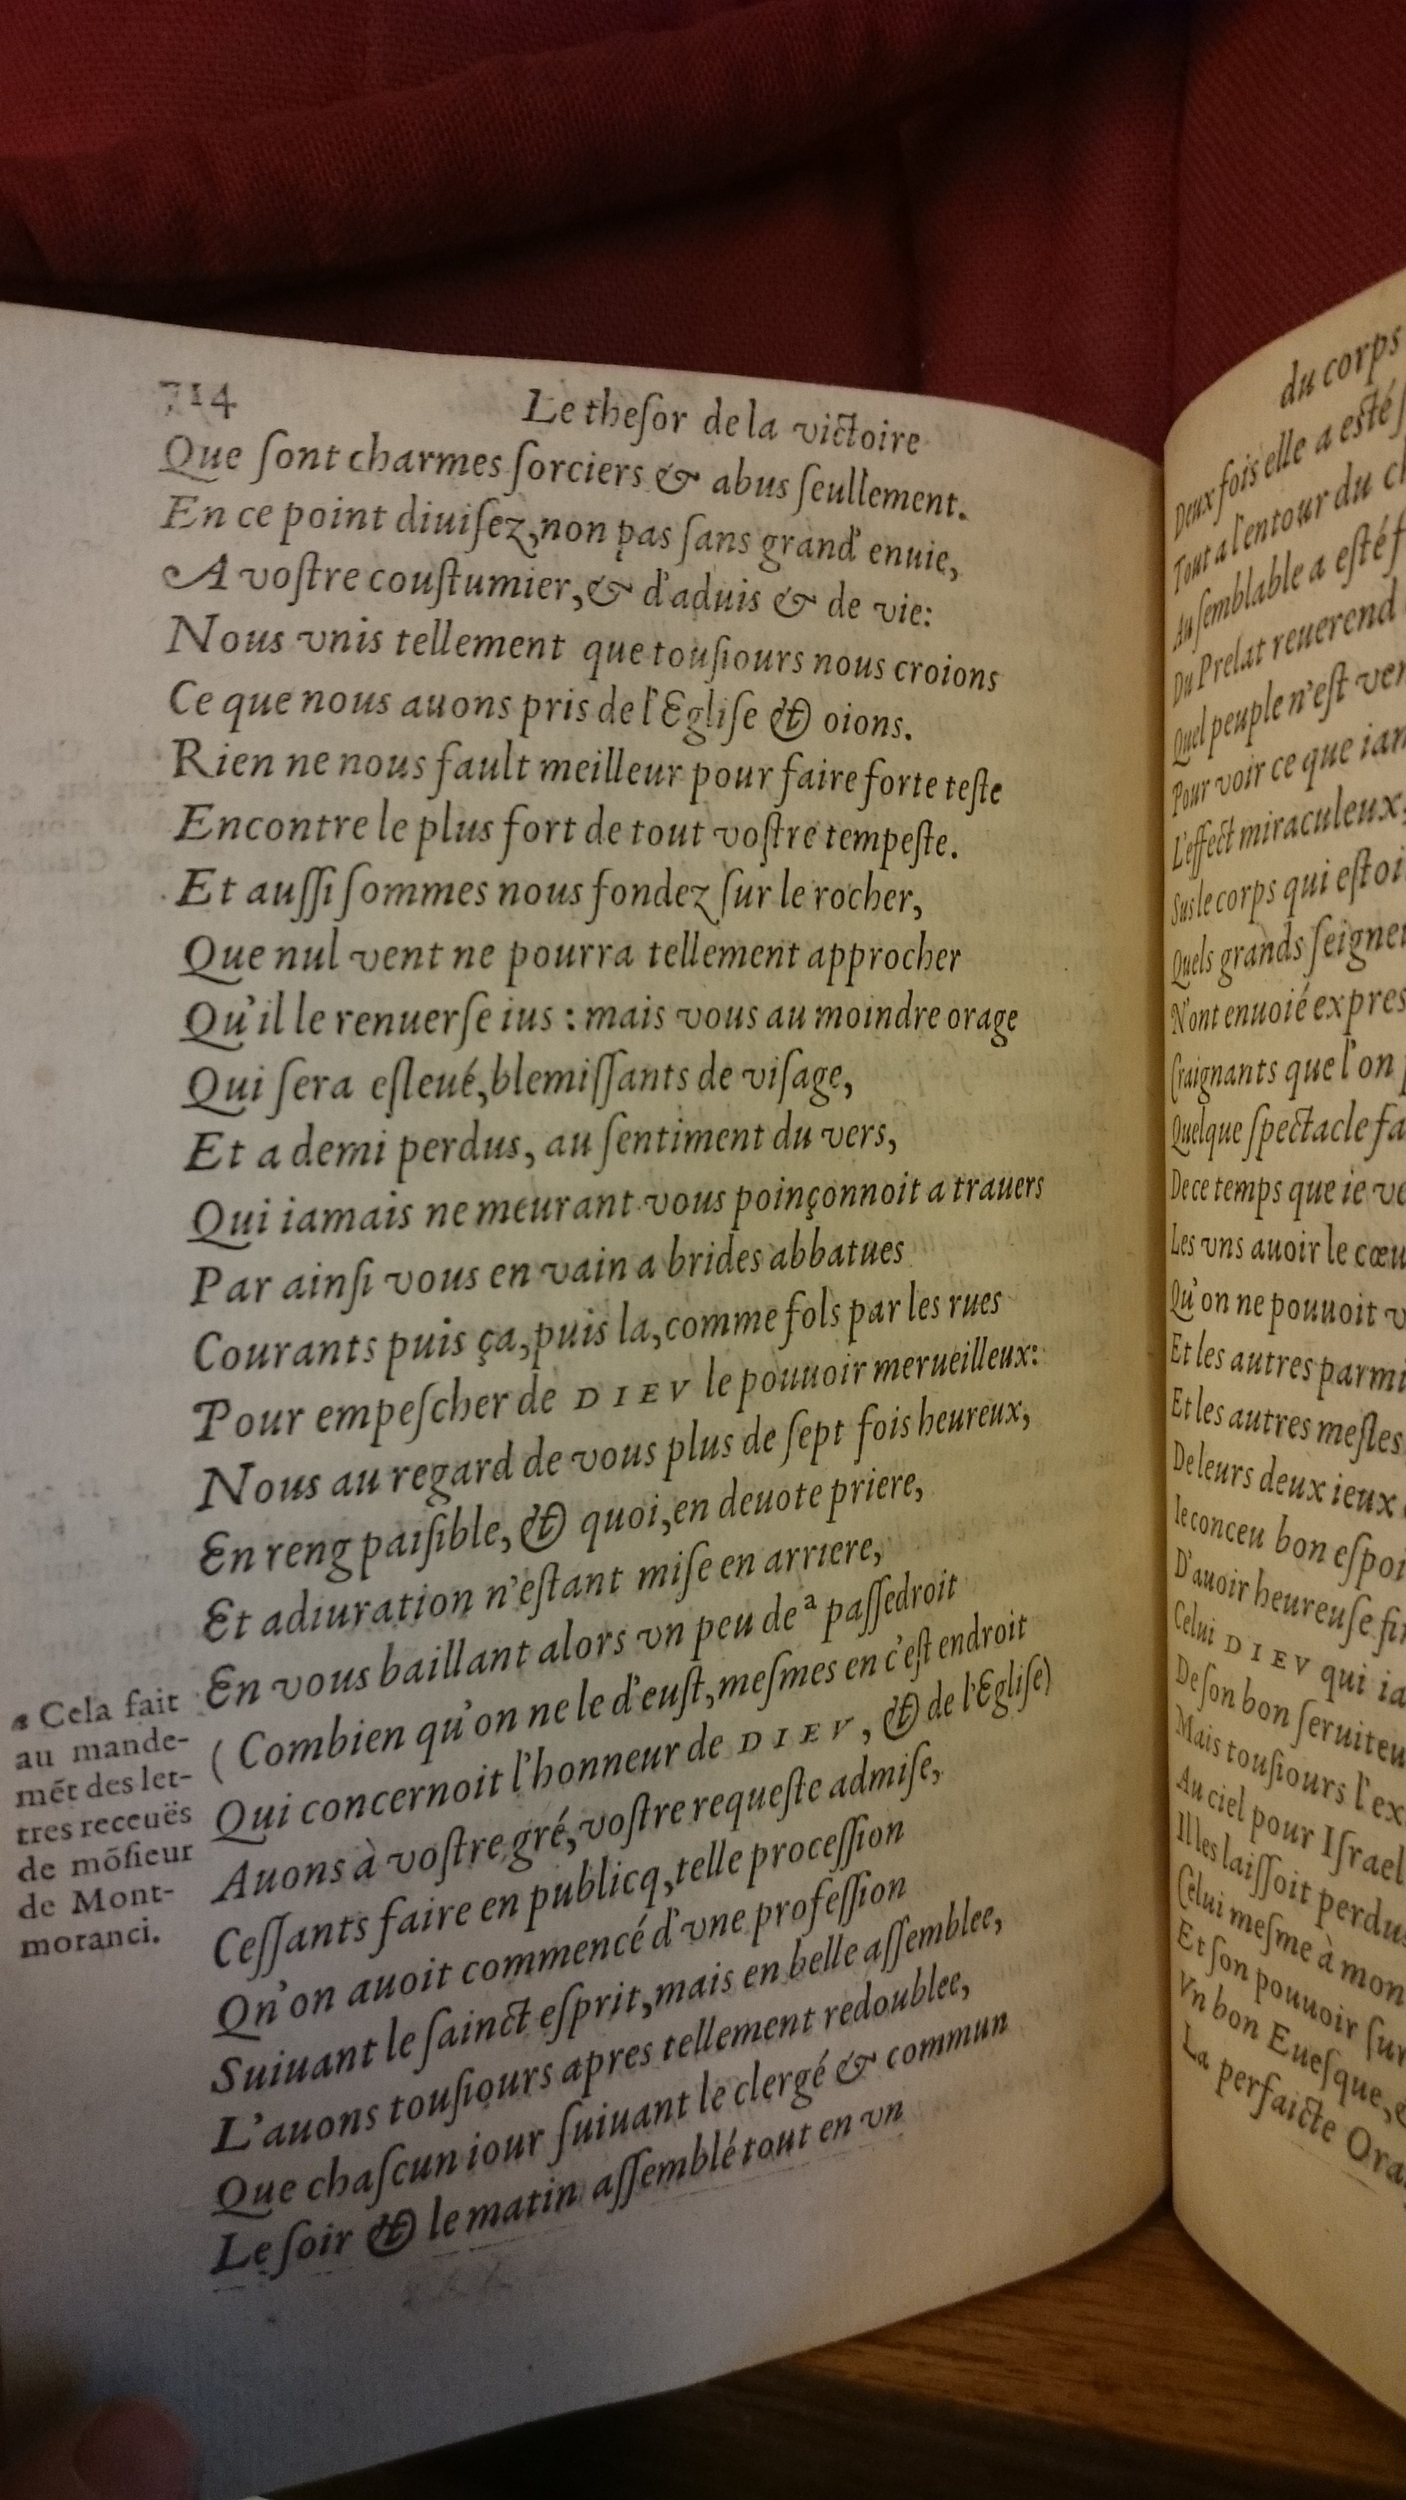 714 Le theſor de la victoire
Que ſont charmes ſorciers & abus ſeullement.
En ce point diuiſez, non pas ſans grand' enuie,
A voſtre couſtumier, & d'aduis & de vie:
Nous vnis tellement que touſiours nous croions
Ce que nous auons pris de l'Egliſe & oions.
Rien ne nous fault meilleur pour faire forte teſte
Encontre le plus fort de tout voſtre tempeſte.
Et auſſi ſommes nous fondez ſur le rocher,
Que nul vent ne pourra tellement approcher
Qu'il le renuerſe ius : mais vous au moindre orage
Qui ſera eſleué, blemiſſants de viſage,
Et a demi perdus, au ſentiment du vers,
Qui iamais ne meurant vous poinçonnoit a trauers
Par ainſi vous en vain a brides abbatues
Courants puis ça, puis la, comme fols par les rues
Pour empeſcher de DIEV le pouuoir merueilleux:
Nous au regard de vous plus de ſept fois heureux,
En reng paiſible, & quoi, en deuote priere,
Et adiuration n'eſtant miſe en arriere,
En vous baillant alors vn peu de ᵃ paſſedroit
( Combien qu'on ne le d'euſt, meſmes en c'eſt endroit
Qui concernoit l'honneur de DIEV, & de l'Egliſe)
Auons à voſtre gré, voſtre requeſte admiſe,
Ceſſants faire en publicq, telle proceſſion
Qn'on auoit commencé d'vne profeſſion
Suiuant le ſainct eſprit, mais en belle aſſemblee,
L'auons touſiours apres tellement redoublee,
Que chaſcun iour ſuiuant le clergé & commun
Le ſoir & le matin aſſemblé tout en vn
a Cela fait
au mande-
mẽt des let-
tres receuës
de mõſieur
de Mont-
moranci.
du corps
Deux fois elle a eſté
Tout a l'entour du
Au ſemblable a eſté
Du Prelat reuerend
Quel peuple n'eſt
Pour voir ce que
L'effect miraculeux,
Sus le corps qui
Quels grands
N'ont enuoié expres
Craignants que l'on
Quelque ſpectacle
De ce temps que ie
Les vns auoir le
Qu'on ne pouuoit
Et les autres
Et les autres meſles
De leurs deux ieux
Ie conceu bon
D'auoir heureuſe
Celui DIEV qui
De ſon bon
Mais touſiours
Au ciel pour Iſrael
Il les laiſſoit
Celui meſme à
Et ſon pouuoir
Vn bon Eueſque,
La perfaicte